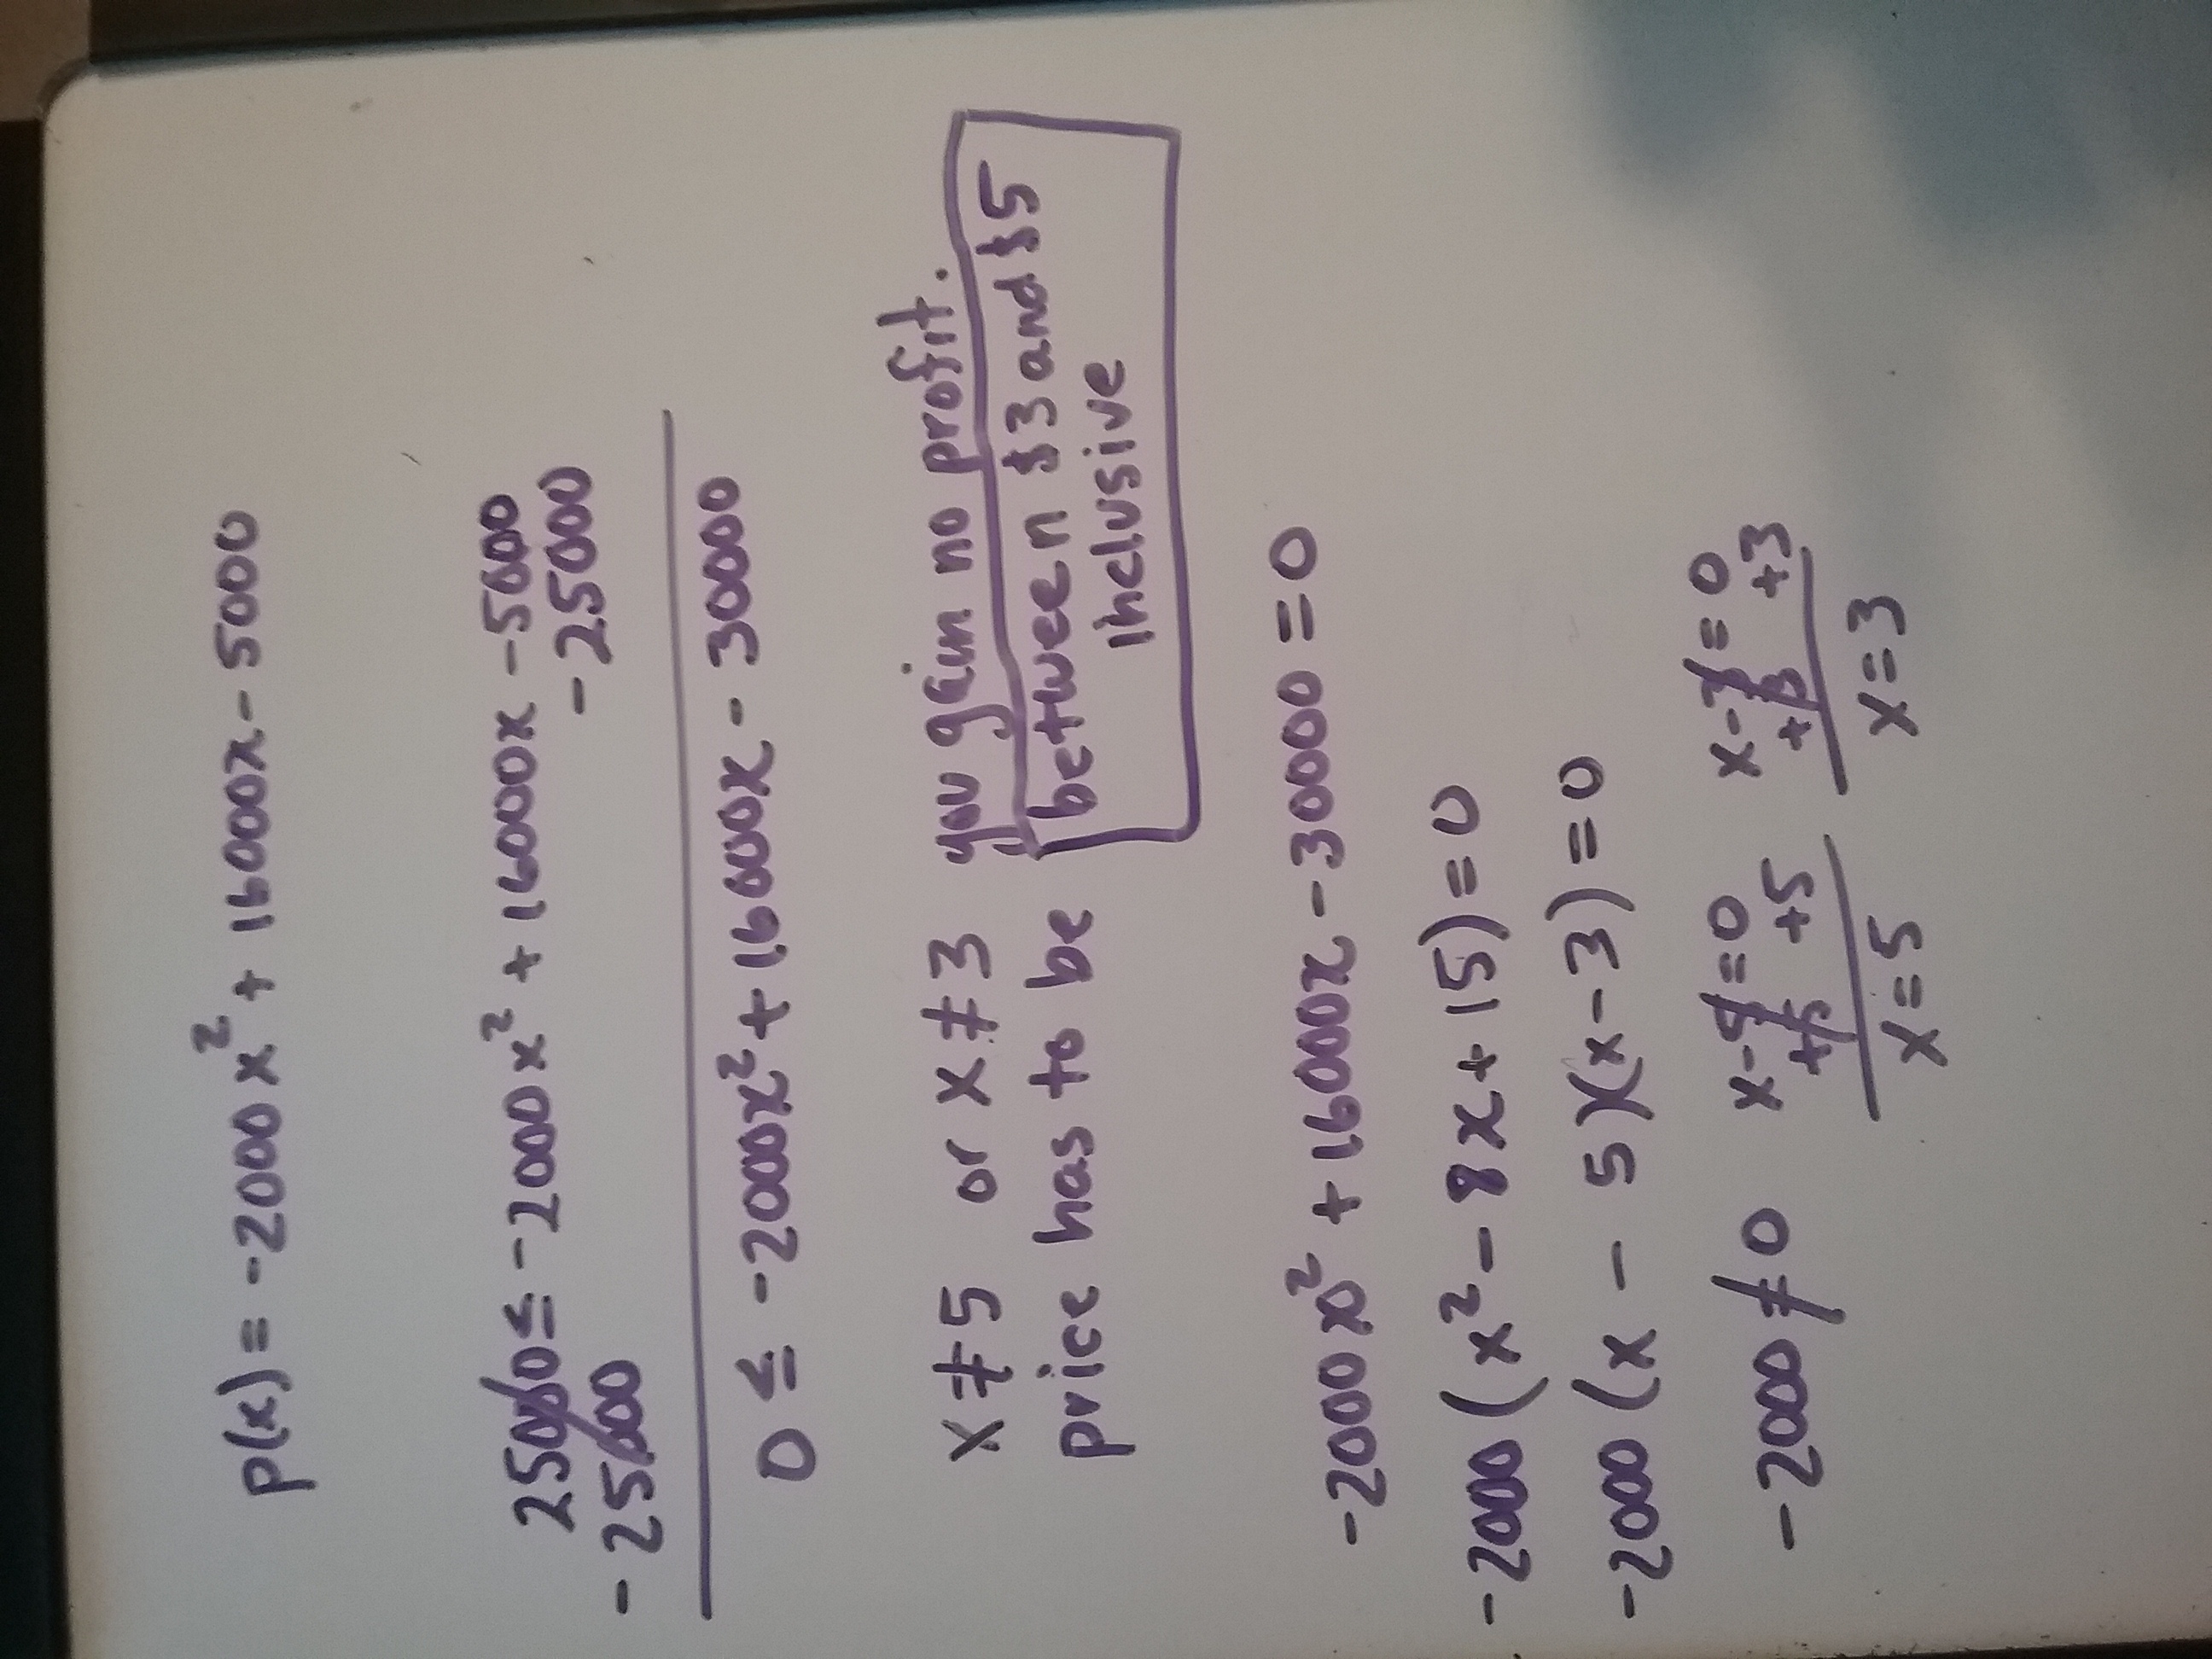 P(x) = -2000x² + 16000x - 5000
25000 ≤ -2000x² + 16000x - 5000
- 25000 - 25000
0 ≤ -2000x² + 16000x - 30000
x ≠ 5 or x ≠ 3 you gain no profit.
price has to be between $3 and $5
inclusive
-2000x² + 16000x - 30000 = 0
-2000 (x² - 8x + 15) = 0
-2000 (x - 5)(x - 3) = 0
-2000 ≠ 0 x - 5 = 0 x - 3 = 0
+5 +5 +3 +3
x = 5 x = 3